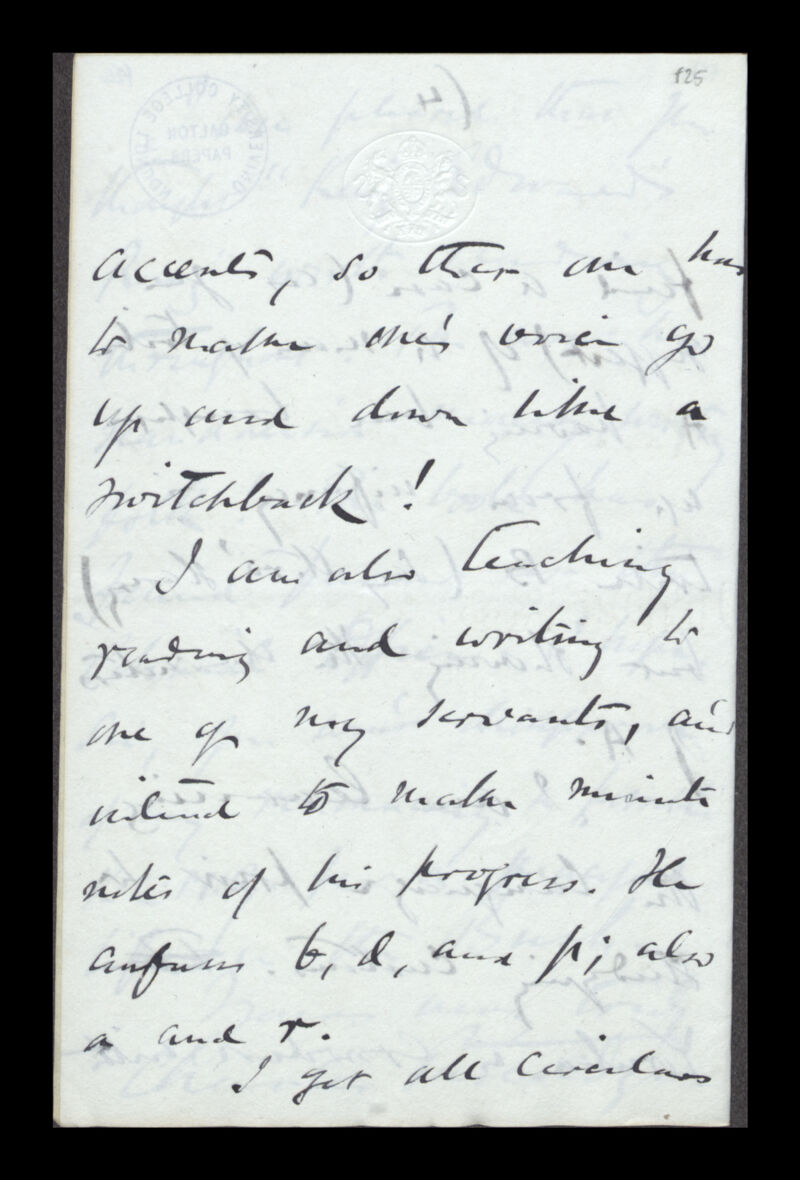 f25
accents, so that one has
to make one's voice go
up and down like a
switchback!
I am also teaching
reading and writing to
one of my servants, and
intend to make minute
notes of his progress. He
confuses b, d, and p; also
a and r.
I get all circulars